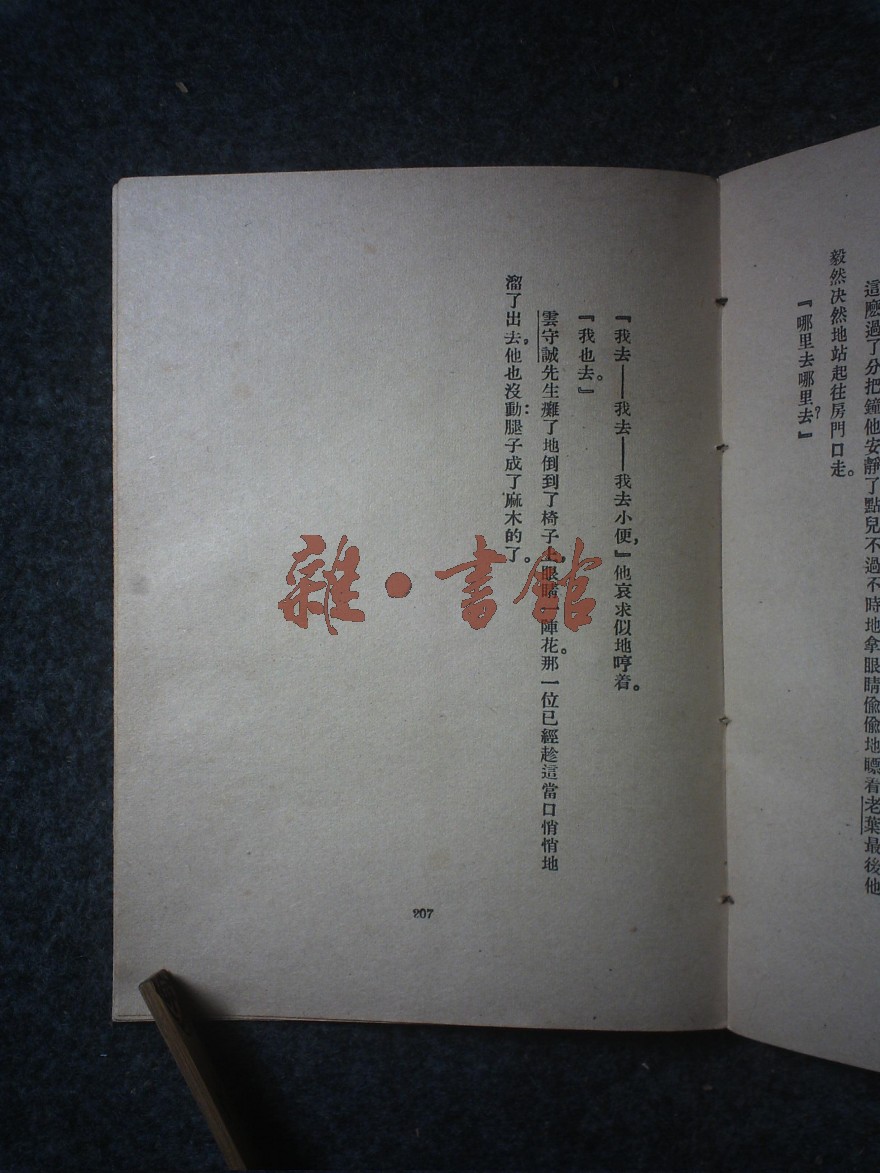 這麽過了分把鐘他安靜了點兒不過不時地拿眼睛偷偷地瞟着老葉最後他
毅然决然地站起往房門口走。
『哪里去哪里去？』
『我去——我去——我去小便，』他哀求似地哼着。
『我也去。』
雲守誠先生癱了地倒到了椅子上，眼睛一陣花。那一位已經趁這當口悄悄地
溜了出去，他也沒動：腿子成了麻木的了。
207
雜·書館